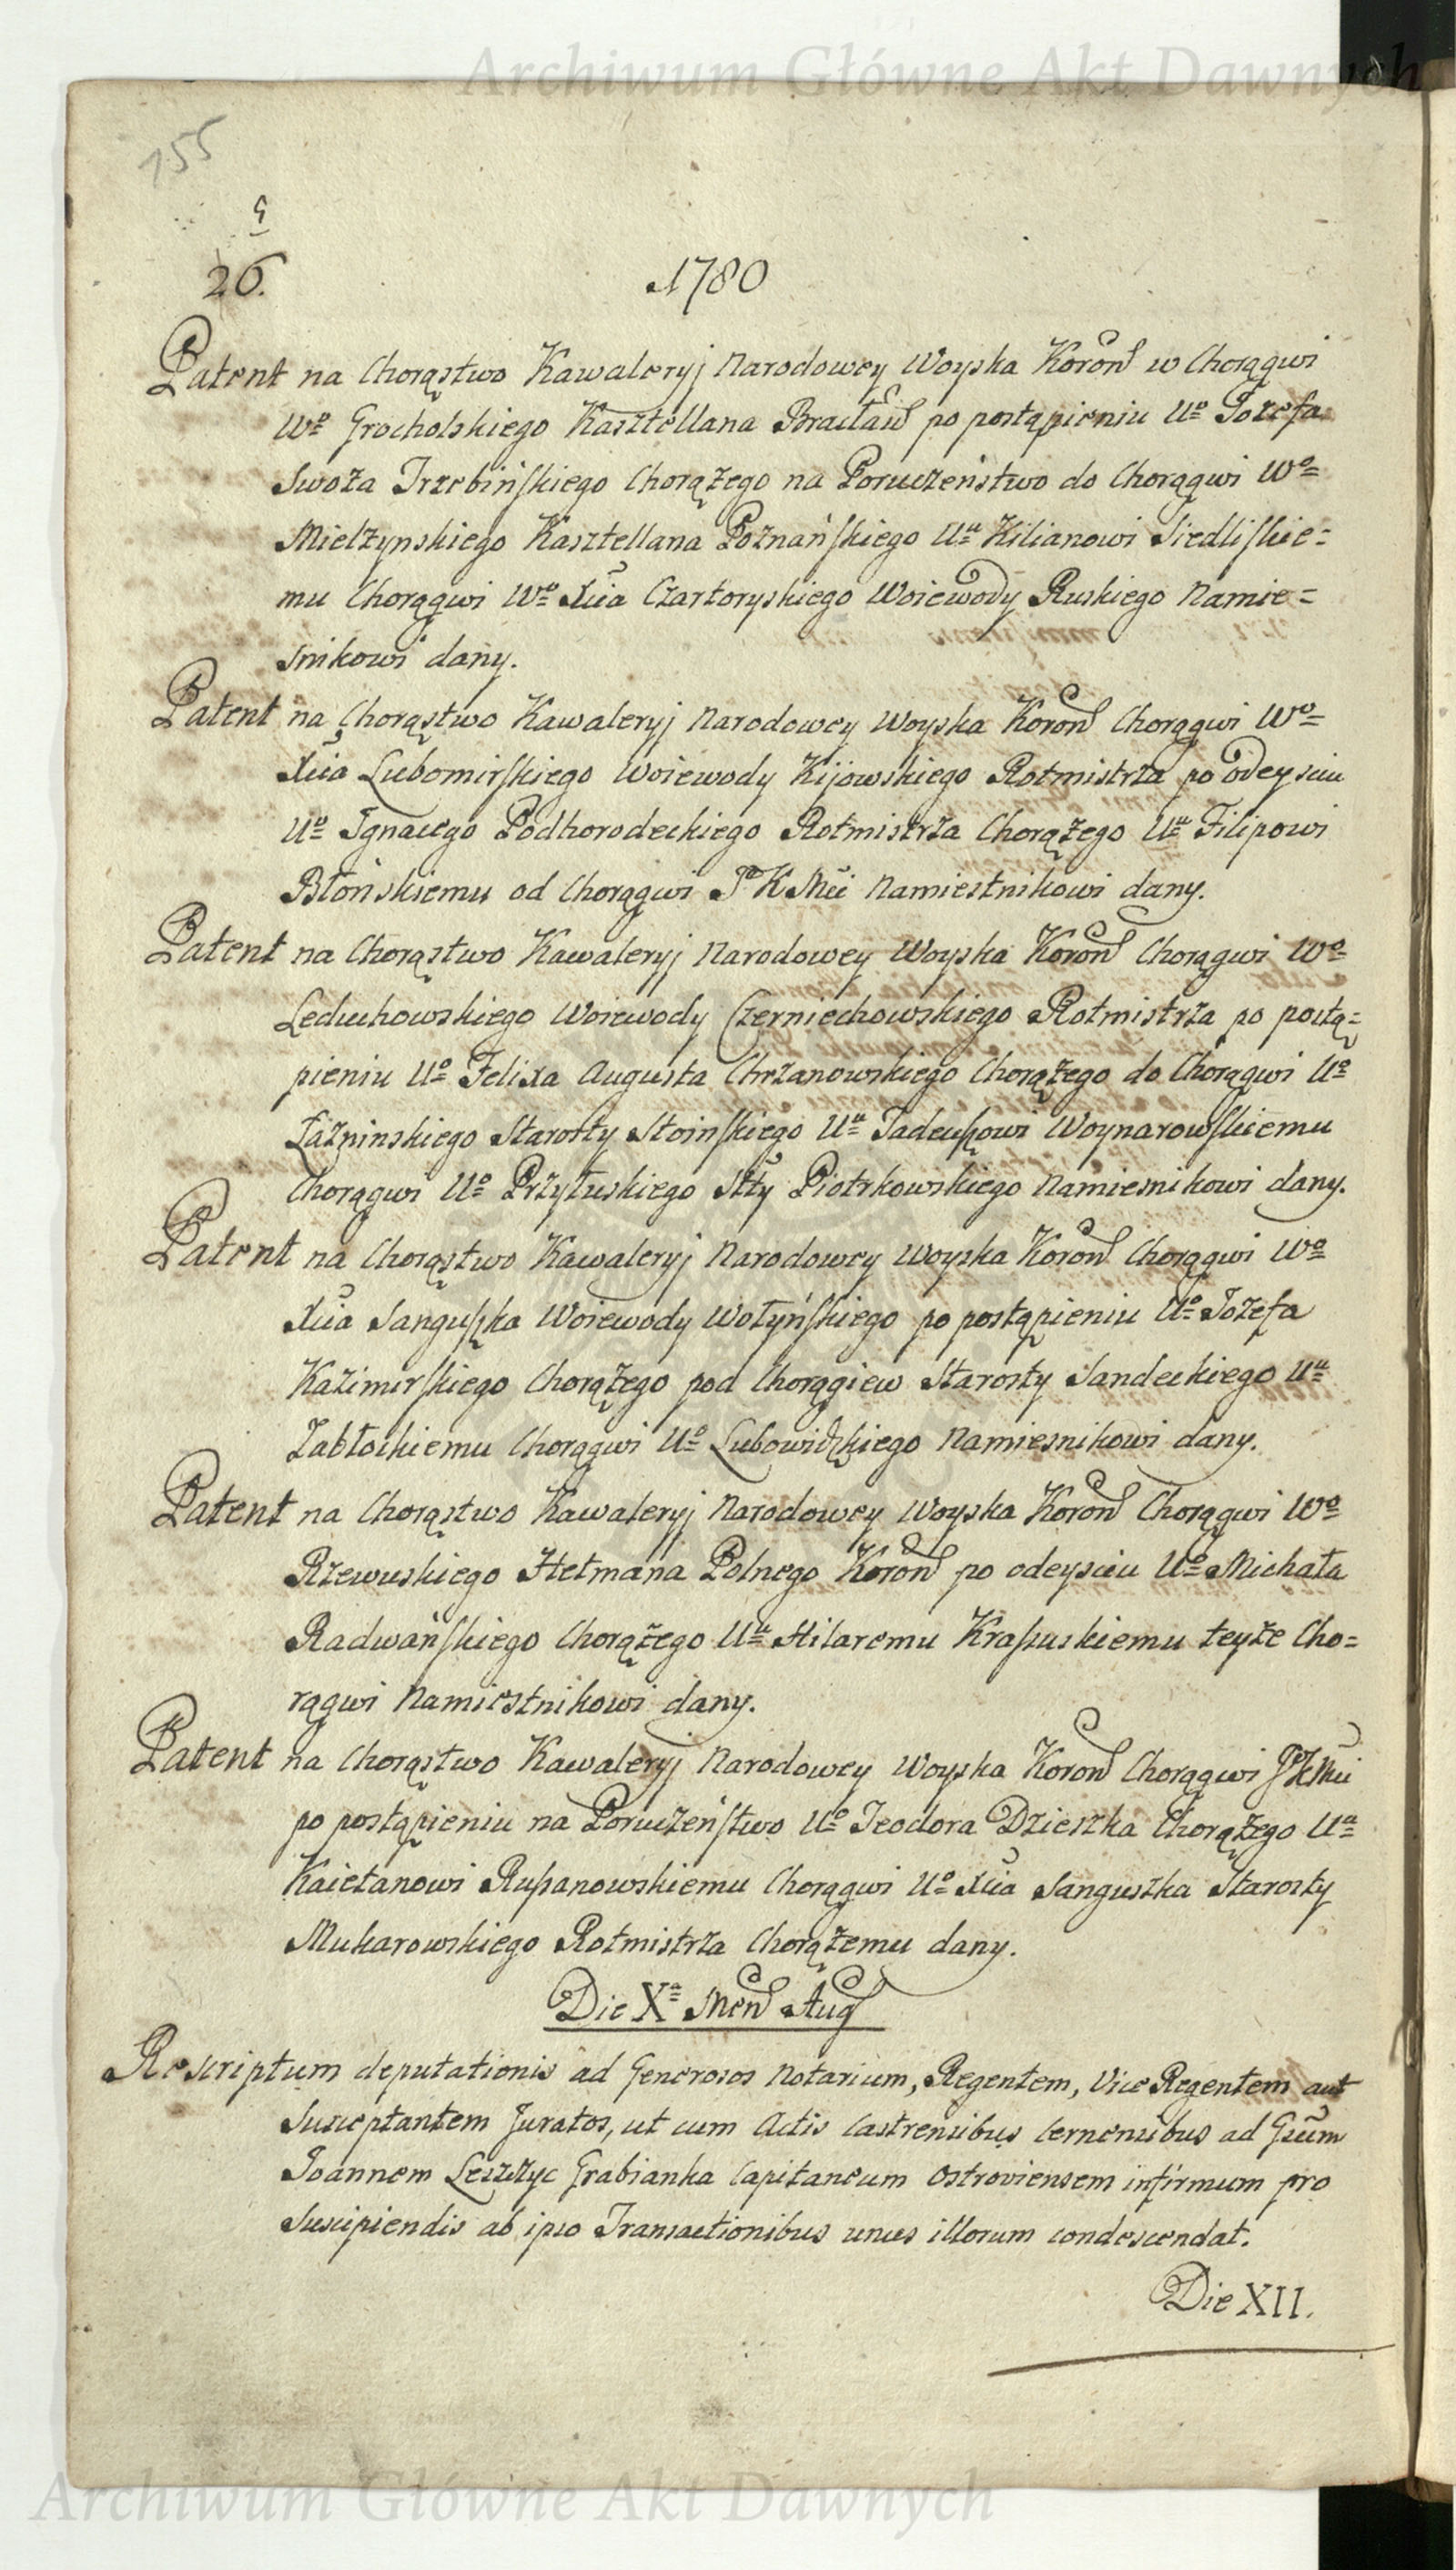 Archiwum Główne Akt Dawnych
155
26.
1780
Patent na Chorąstwo Kawaleryj Narodowey Woyska Koron w Chorągwi
Wº Grocholskiego Kasztellana Bracław po postąpieniu Uº Jozefa
Swoża Trzebińskiego Chorążego na Poruczenstwo do Chorągwi Wº
Mielżynskiego Kasztellana Poznańskiego Uu Kilianowi Siedliskie=
mu Chorągwi Wº Xcia Czartoryskiego Woiewody Ruskiego Namie=
snikowi dany.
Patent na Chorąstwo Kawaleryj Narodowey Woyska Koron Chorągwi Wº
Xcia Lubomirskiego Woiewody Kijowskiego Rotmistrza po odeysciu
Uº Ignacego Podhorodeckiego Rotmistrza Chorążego Uu Filipowi
Błońskiemu od Chorągwi J K Mci Namiestnikowi dany.
Patent na Chorąstwo Kawaleryj Narodowey Woyska Koron Chorągwi Wº
Leduchowskiego Woiewody Czerniechowskiego Rotmistrza po postą=
pieniu Uº Felixa Augusta Chrzanowskiego Chorążego do Chorągwi Uº
Łaźninskiego Starosty Stoinskiego Uu Tadeuszowi Woynarowskiemu
Chorągwi Uº Przyłuskiego Stty Piotrkowskiego Namiesnikowi dany.
Patent na Chorąstwo Kawaleryj Narodowey Woyska Koron Chorągwi Wº
Xcia Sanguszka Woiewody Wołyńskiego po postąpieniu Uº Jozefa
Kazimirskiego Chorążego pod Chorągiew Starosty Sandeckiego Uu
Zabłockiemu Chorągwi Uº Lubowidzkiego Namiesnikowi dany.
Patent na Chorąstwo Kawaleryj Narodowey Woyska Koron Chorągwi Wº
Rzewuskiego Hetmana Polnego Koron po odeysciu Uº Michała
Radwańskiego Chorążego Uu Hilaremu Kraszuskiemu teyże Cho=
rągwi Namiestnikowi dany.
Patent na Chorąstwo Kawaleryj Narodowey Woyska Koron Chorągwi JKMci
po postąpieniu na Poruczeństwo Uº Teodora Dzieszka Chorążego Uu
Kaietanowi Rupanowskiemu Chorągwi Uº Xcia Sanguszka Starosty
Mukarowskiego Rotmistrza Chorążemu dany.
Die Xa Men Aug
Rescriptum deputationis ad Generosos Notarium, Regentem, Vice Regentem aut
Susceptantem Juratos, ut cum Actis Castrensibus Cernensibus ad Gsum
Joannem Leszczyc Grabianka Capitaneum Ostroviensem infirmum pro
Suscipiendis ab ipso Transactionibus unus illorum condescendat.
Die XII.
Archiwum Główne Akt Dawnych